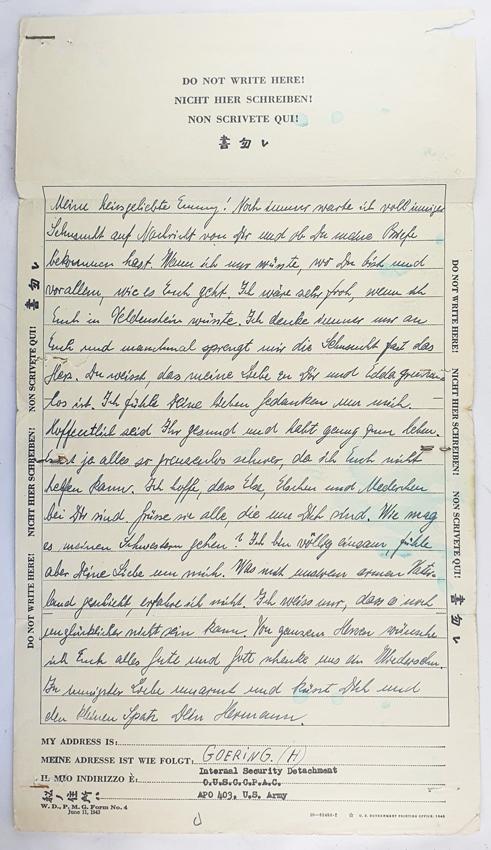 DO NOT WRITE HERE!
NICHT HIER SCHREIBEN!
NON SCRIVETE QUI!
書勿レ
Meine heissgeliebte Emmy! Noch immer warte ich voll inniger
Sehnsucht auf Nachricht von Dir und ob Du meine Briefe
bekommen hast. Wenn ich nur wüsste, wo Du bist und
vorallem, wie es Euch geht. Ich wäre sehr froh, wenn ich
Euch in Veldenstein wüsste. Ich denke immer nur an
Euch und manchmal sprengt mir die Sehnsucht fast das
Herz. Du weisst, das meine Liebe zu Dir und Edda grenzen-
los ist. Ich fühle Deine lieben Gedanken um mich.
Hoffentlich seid Ihr gesund und habt genug zum Leben.
ist ja alles so grenzenlos schwer, da ich Euch nicht
helfen kann. Ich hoffe, dass Else, Elschen und
bei Dir sind. Grüsse sie alle, die um Dich sind. Wie mag
es meinen Schwestern gehen? Ich bin völlig einsam, fühle
aber Deine Liebe um mich. Was mit unserem armen Vater-
land geschieht, erfahre ich nicht. Ich weiss nur, dass es noch
unglücklicher nicht sein kann. Von ganzem Herzen wünsche
ich Euch alles Gute und Gott schenke uns ein Wiedersehn.
In innigster Liebe umarmt und küsst Dich und
den kleinen Spatz Dein Hermann.
DO NOT WRITE HERE! NICHT HIER SCHREIBEN! NON SCRIVETE QUI! 書勿レ
DO NOT WRITE HERE! NICHT HIER SCHREIBEN! NON SCRIVETE QUI! 書勿レ
MY ADDRESS IS:
MEINE ADRESSE IST WIE FOLGT: GOERING. (H)
IL MIO INDIRIZZO È: Internal Security Detachment
O.U.S.C.C.P.A.C.
私ノ住所: APO 403, U.S. Army
W. D., P. M. G. Form No. 4
June 11, 1943
U. S. GOVERNMENT PRINTING OFFICE